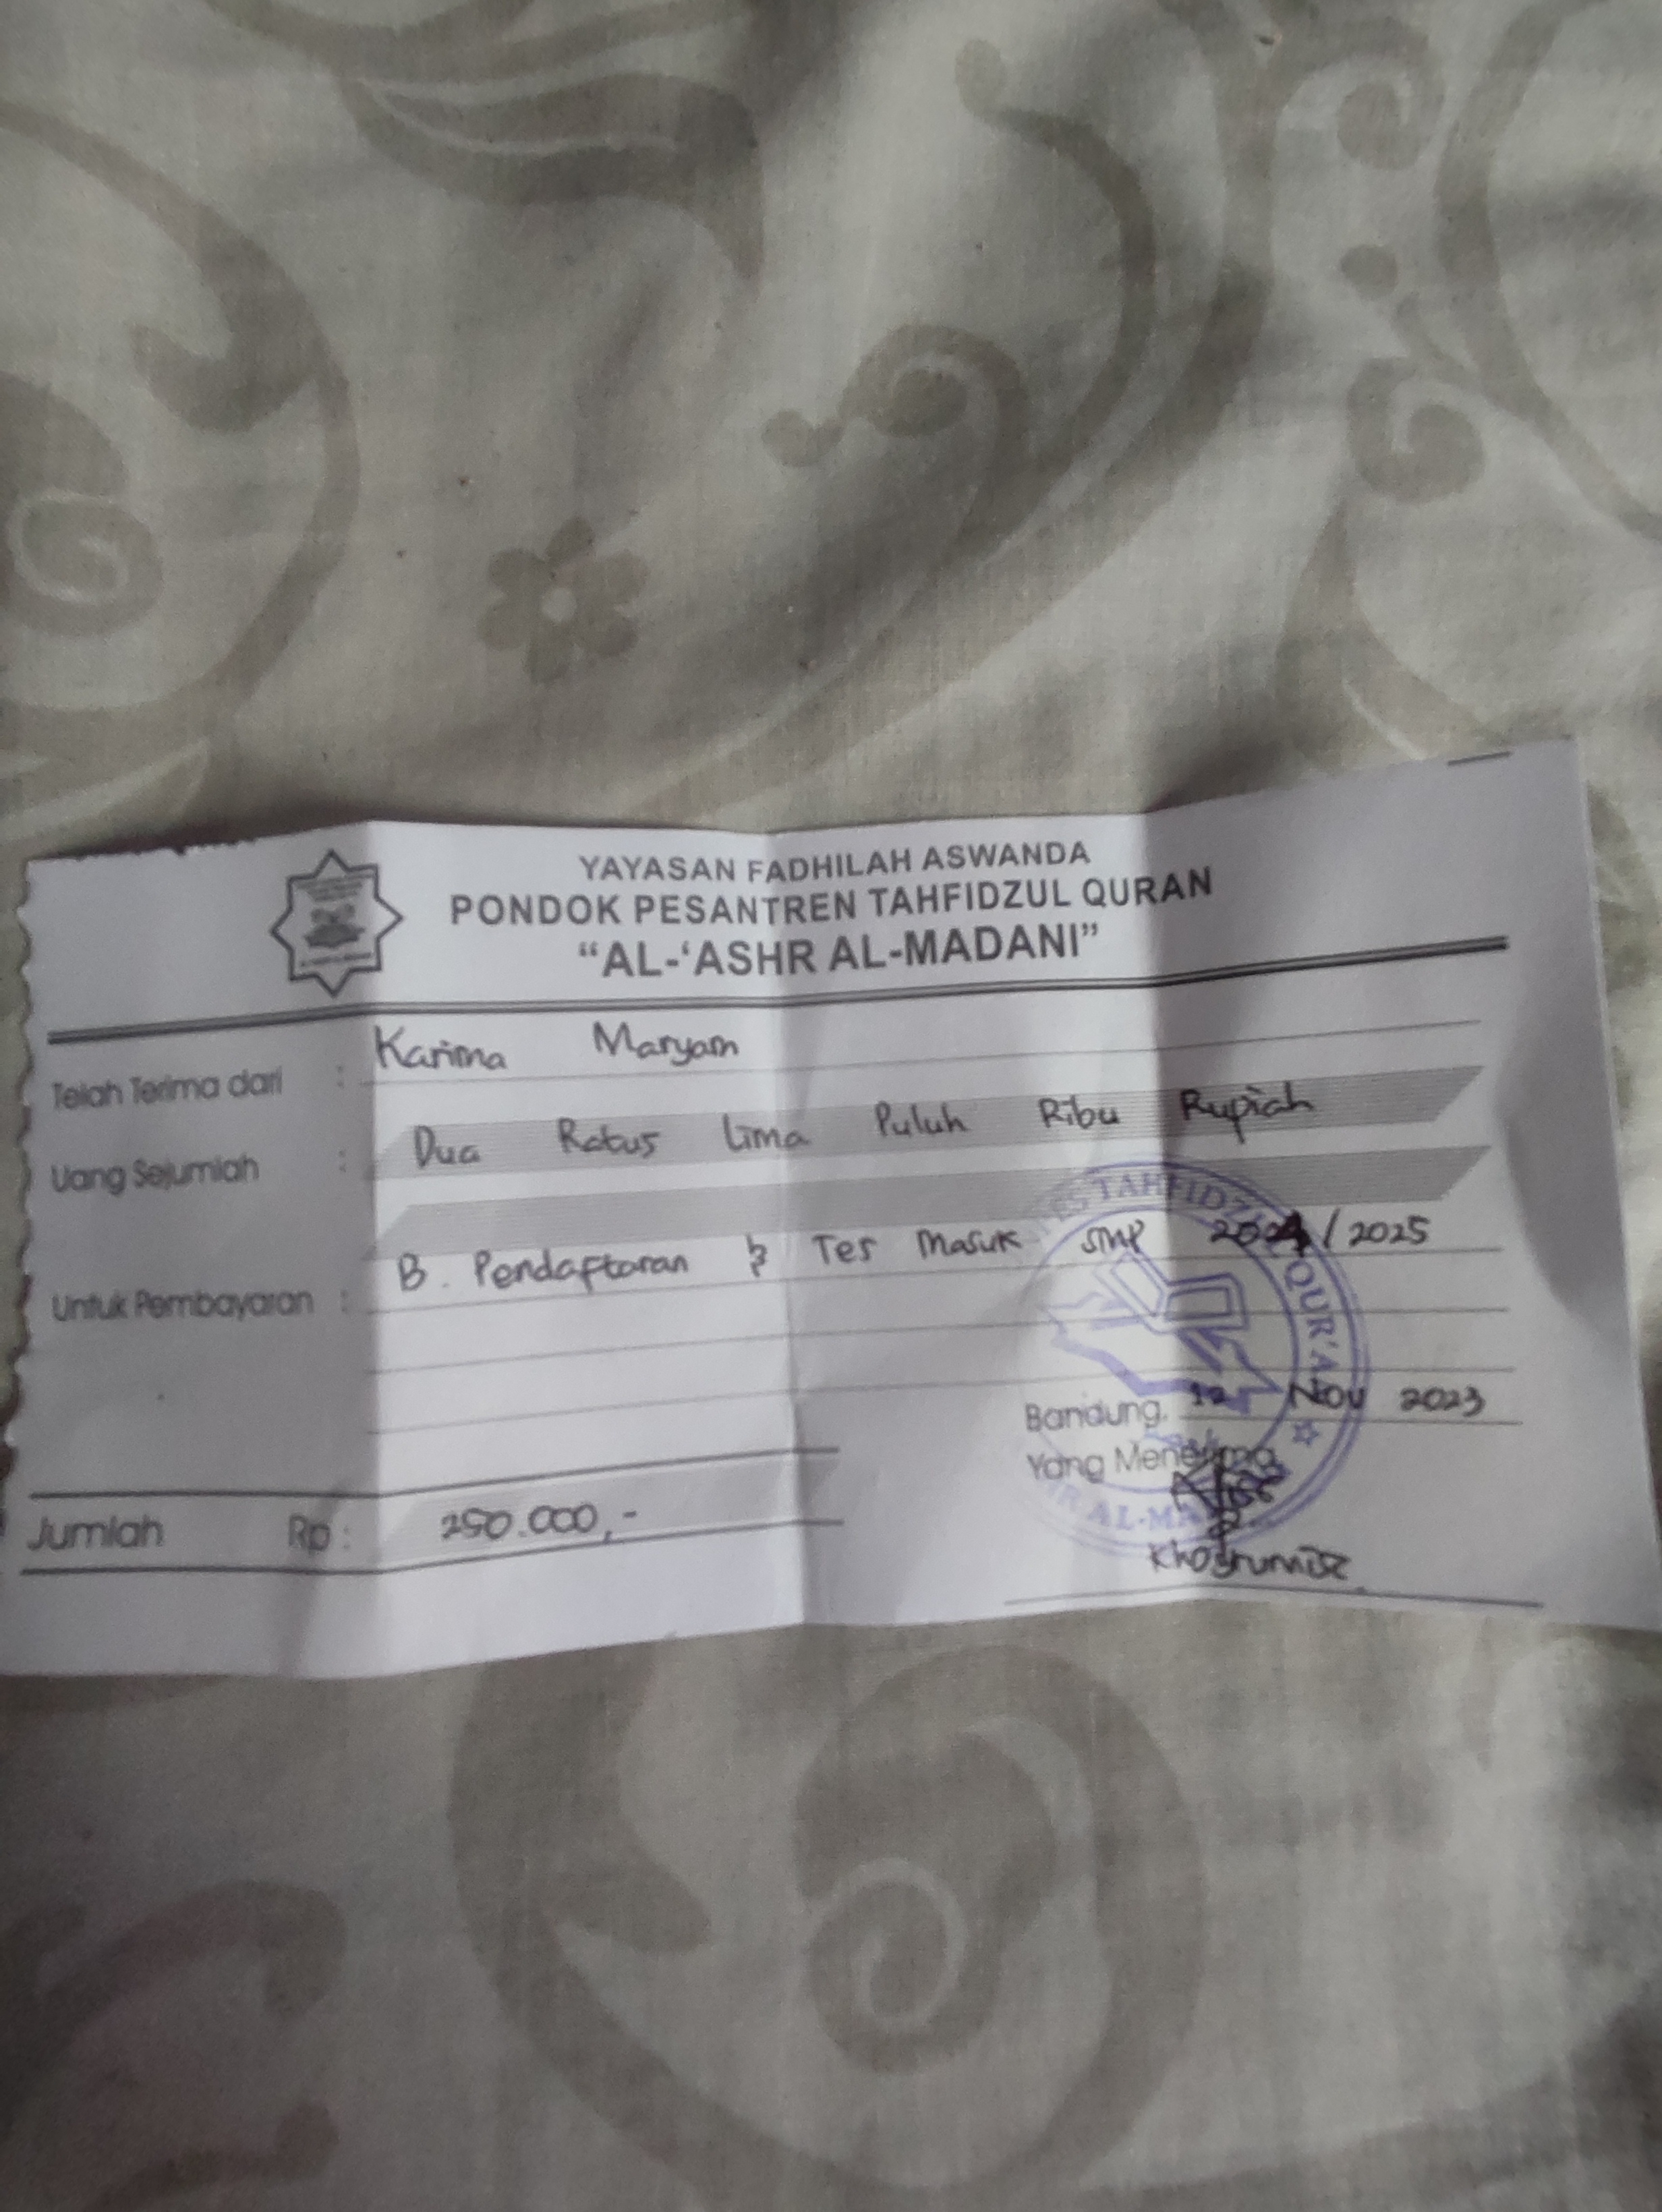 YAYASAN FADHILAH ASWANDA
PONDOK PESANTREN TAHFIDZUL QURAN
“AL-‘ASHR AL-MADANI”
Telah Terima dari : Karima Maryam
Uang Sejumlah : Dua Ratus Lima Puluh Ribu Rupiah
Untuk Pembayaran : B. Pendaftaran & Tes Masuk SMP 2024/2025
TES TAHFIDZUL QUR'AN
Bandung, 12 Nov 2023
Yang Menerima
AL-MA
Jumlah Rp : 250.000,-